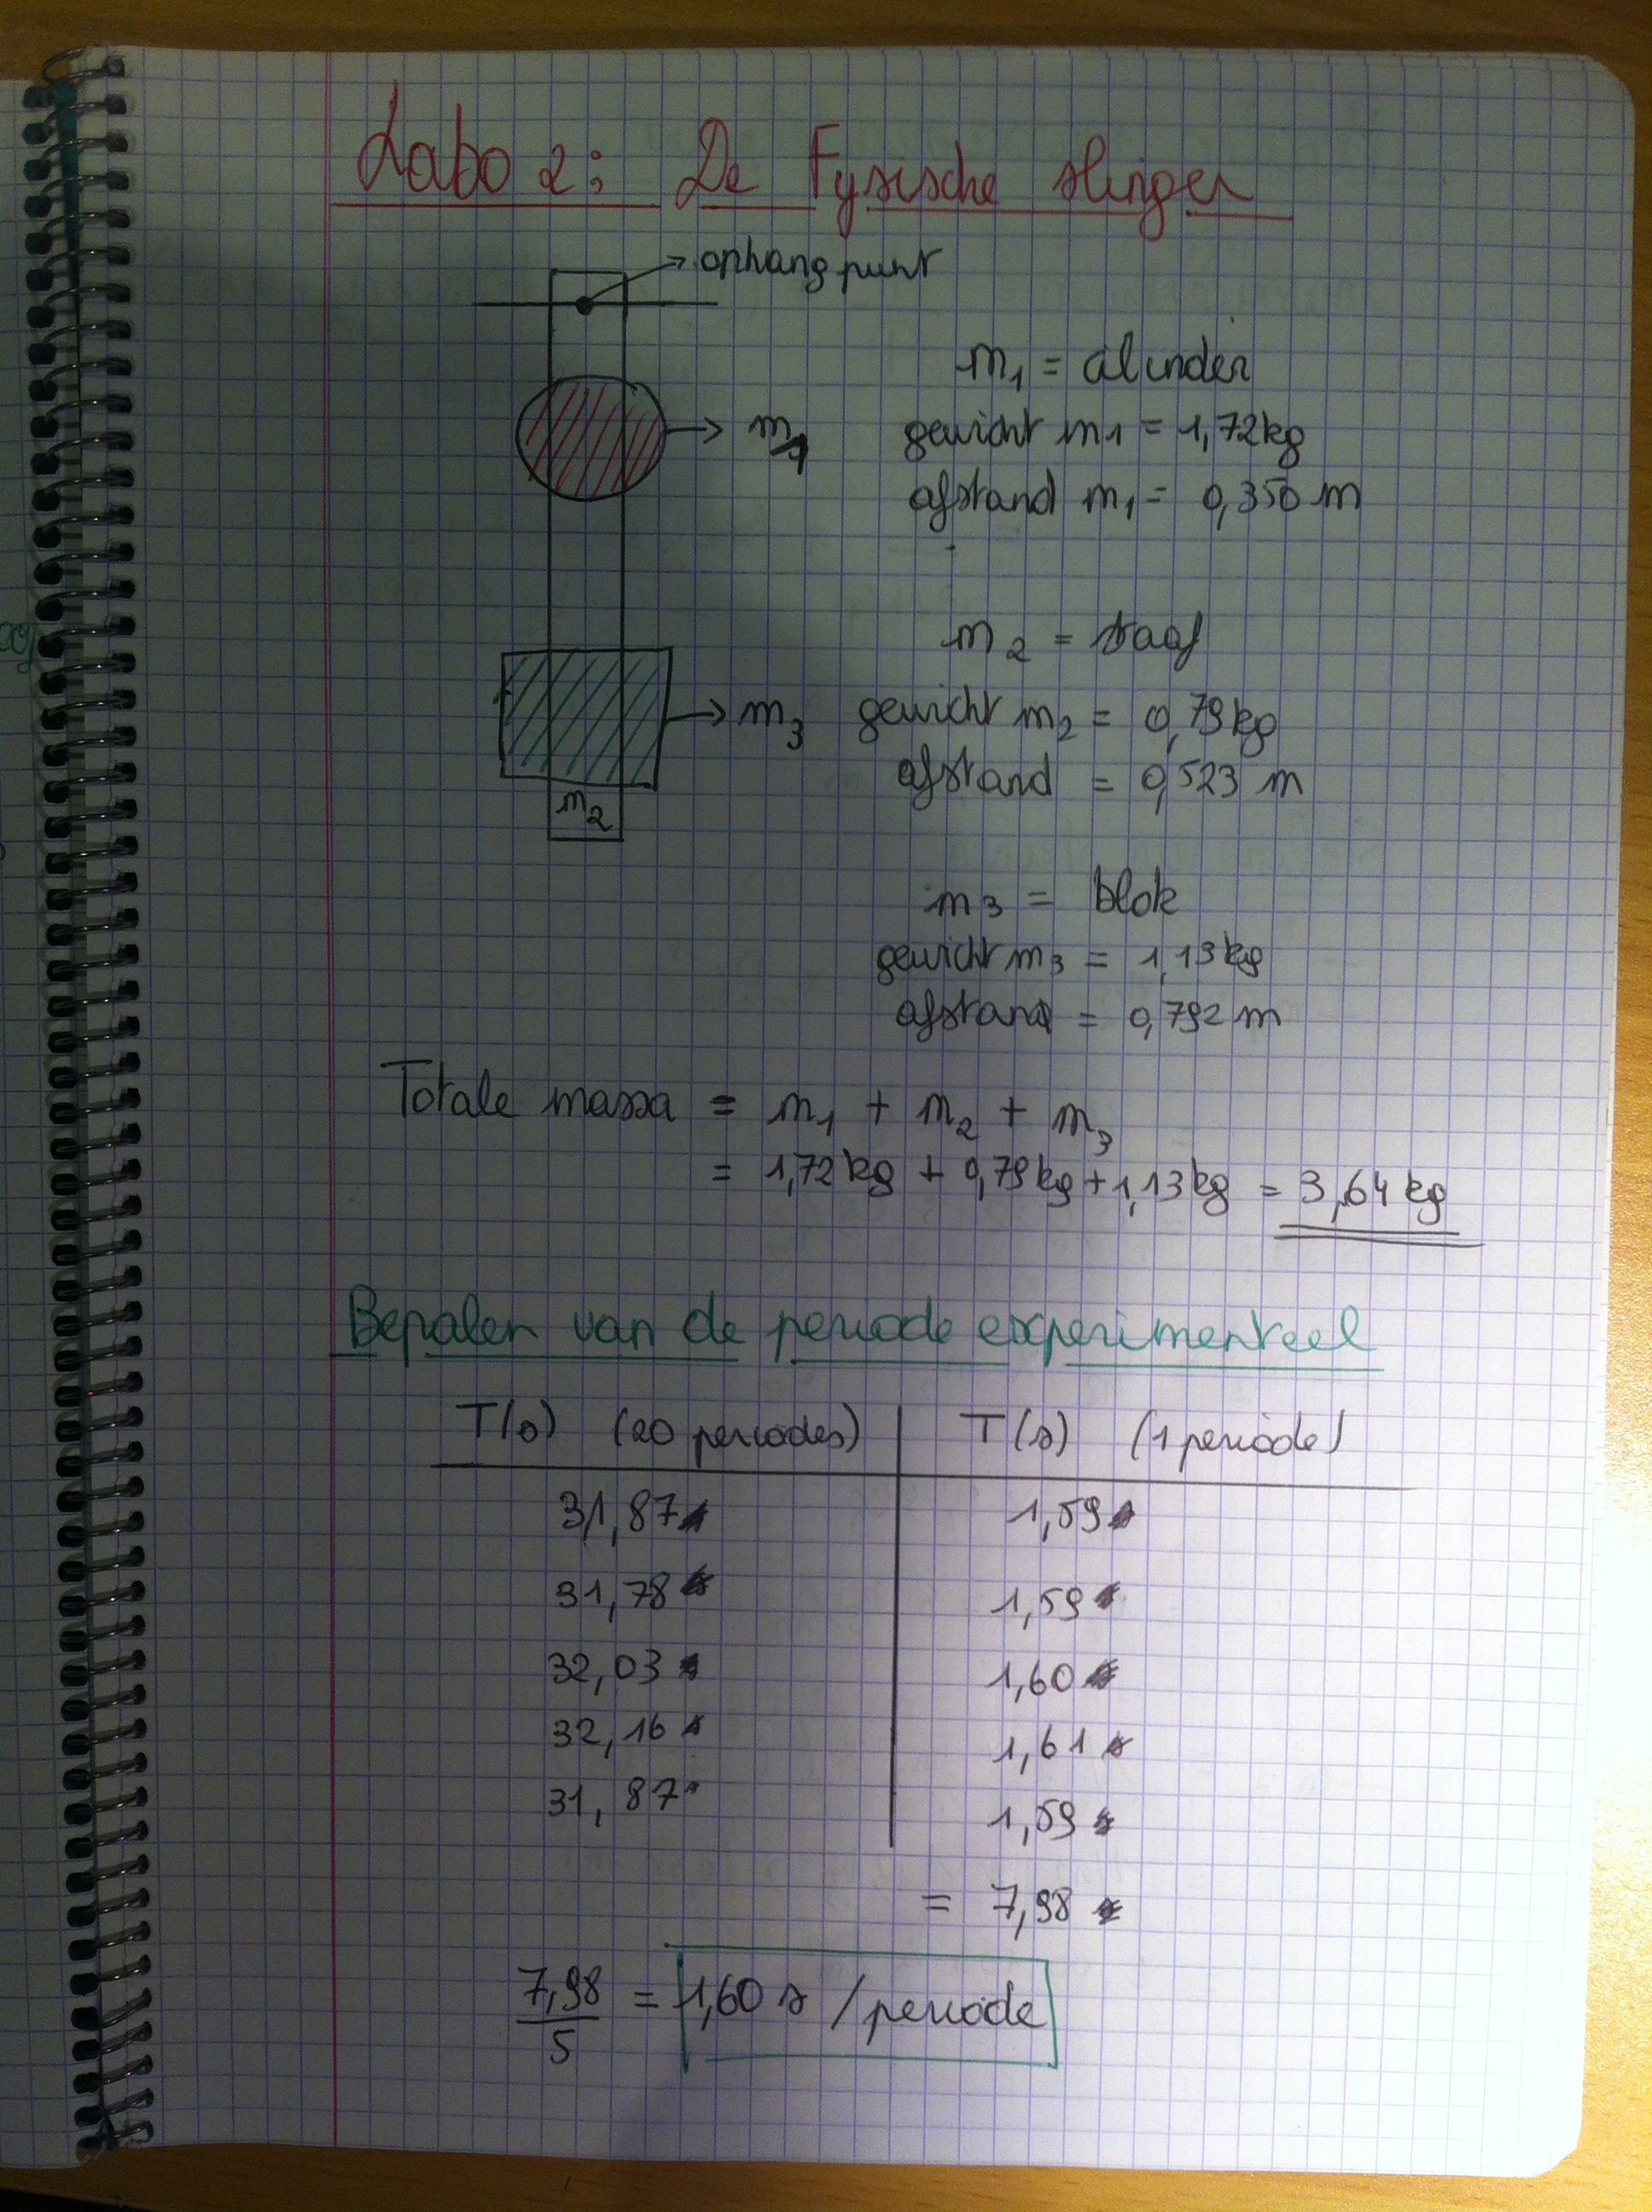 Labo 2: De Fysische slinger
ophangpunt
m1 = cilinder
m1
gewicht m1 = 1,72kg
afstand m1 = 0,350 m
m2 = staaf
m3
gewicht m2 = 0,79kg
afstand = 0,523 m
m2
m3 = blok
gewicht m3 = 1,13kg
afstand = 0,792 m
Totale massa = m1 + m2 + m3
= 1,72kg + 0,79kg + 1,13kg = 3,64kg
Bepalen van de periode experimenteel
T(s) (20 periodes) T(s) (1 periode)
31,87s 1,59s
31,78s 1,59s
32,03s 1,60s
32,16s 1,61s
31,87s 1,59s
= 7,98s
7,98/5 = 1,60 s /periode